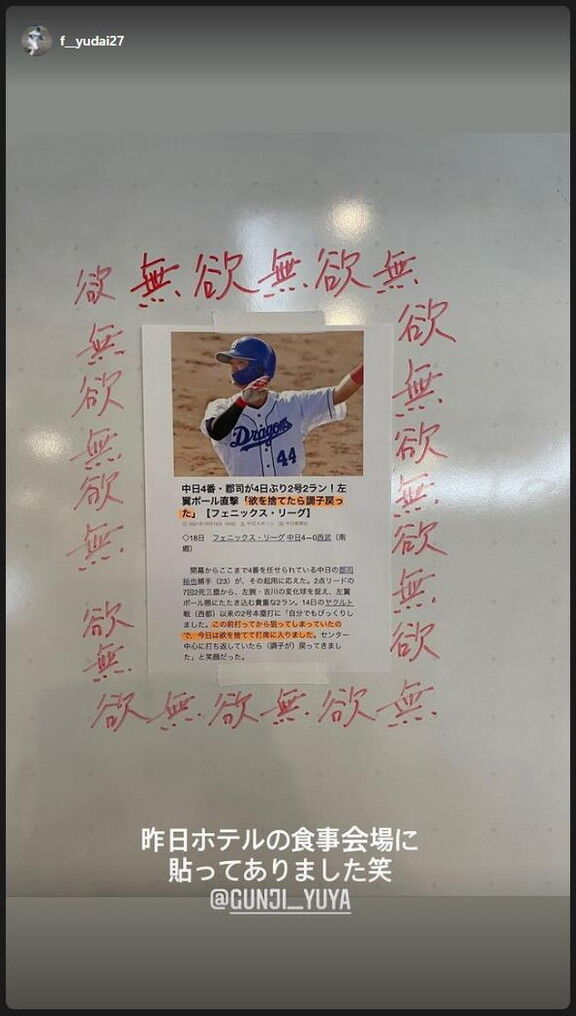 f__yudai27
欲 無 欲 無 欲 無
無 欲
欲 無
無 欲
欲 無
無 欲
欲 欲
無
欲 無 欲 無 欲 無
Dragons
44
中日4番・郡司が4日ぶり2号2ラン!左
翼ポール直撃「欲を捨てたら調子戻っ
た」【フェニックス・リーグ】
中日スポーツ
◇18日 フェニックス・リーグ 中日4―0西武(南
郷)
開幕からここまで4番を任せられている中日の郡司
裕也捕手(23)が、その起用に応えた。2点リードの
7回2死三塁から、左腕・吉川の変化球を捉え、左翼
ポール際にたたき込む貴重な2ラン。14日のヤクルト
戦(西都)以来の2号本塁打に「自分でもびっくりし
ました。この前打ってから狙ってしまっていたの
で、今日は欲を捨てて打席に入りました。センター
中心に打ち返していたら(調子が)戻ってきまし
た」と笑顔だった。
昨日ホテルの食事会場に
貼ってありました笑
@GUNJI__YUYA